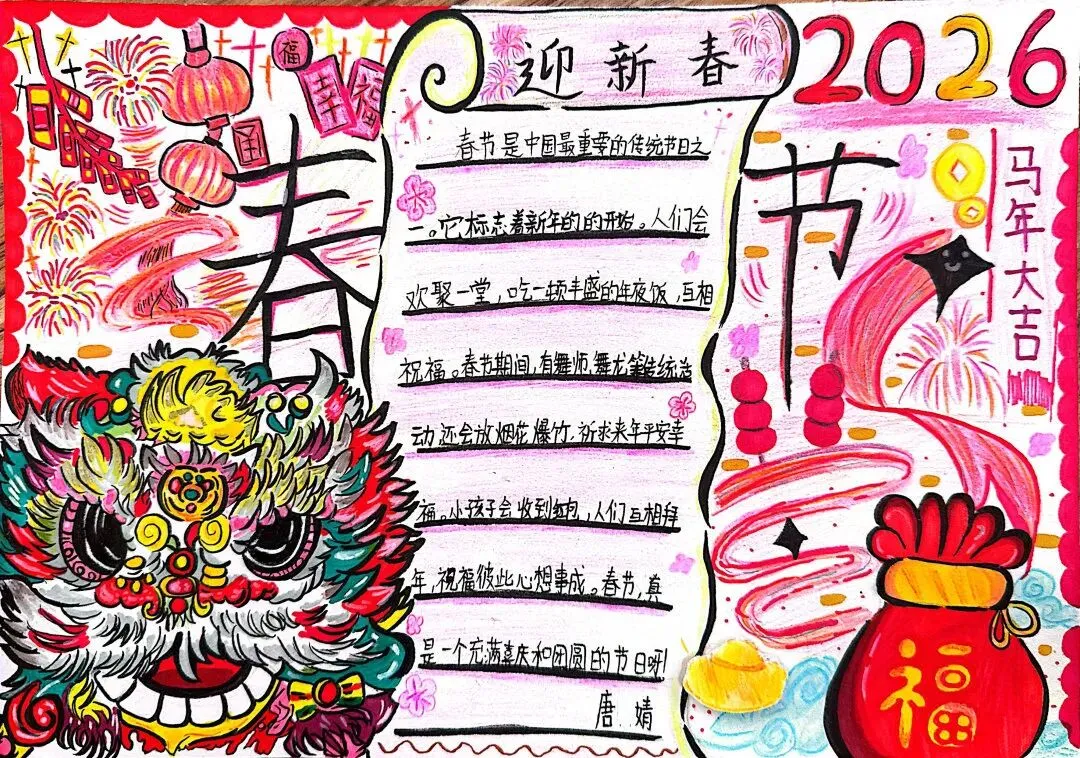 迎新春
2026
福
幸福
春节
马年大吉
春节是中国最重要的传统节日之
一。它标志着新年的的开始。人们会
欢聚一堂，吃一顿丰盛的年夜饭，互相
祝福。春节期间，有舞师舞龙等传统活
动还会放烟花爆竹，祈求来年平安幸
福。小孩子会收到红包，人们互相拜
年，祝福彼此心想事成。春节，真
是一个充满喜庆和团圆的节日呀！
唐婧
福